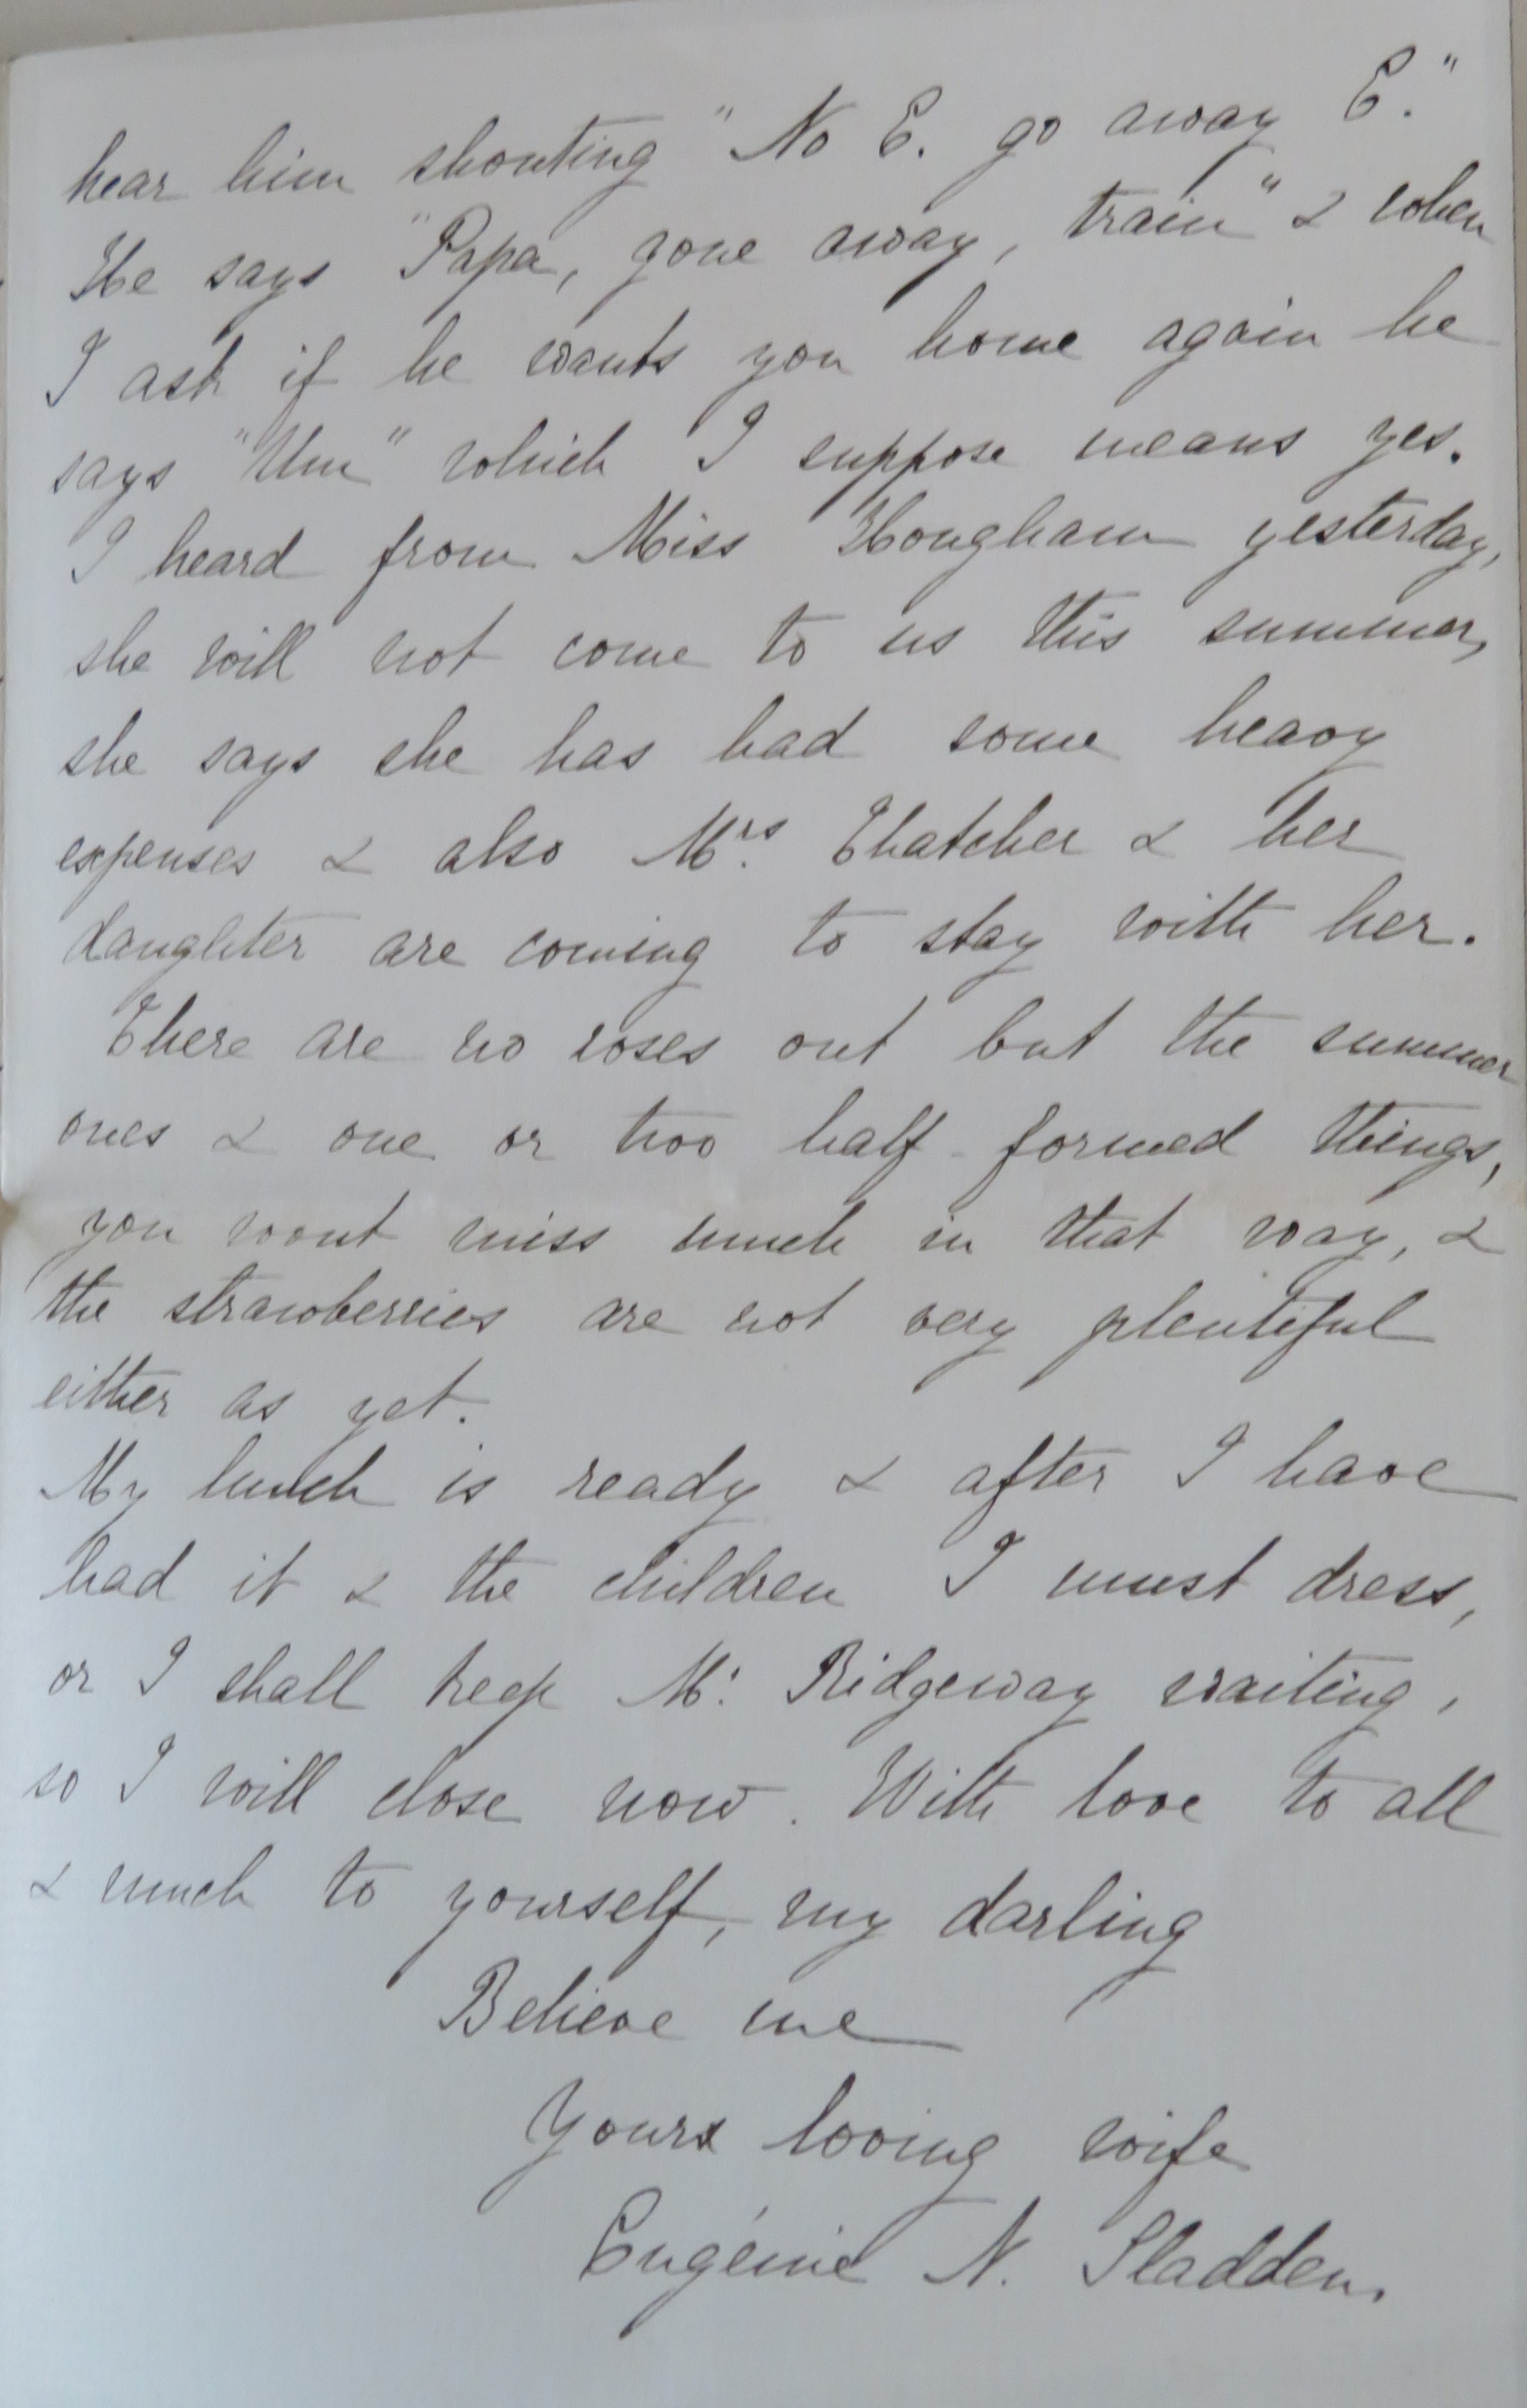 hear him shouting "No E. go away E."
He says "Papa, gone away, train" & when
I ask if he wants you home again he
says "Um" which I suppose means yes.
I heard from Miss Hougham yesterday,
she will not come to us this summer,
she says she has had some heavy
expenses & also Mrs. Thatcher & her
daughter are coming to stay with her.
There are no roses out but the summer
ones & one or two half-formed things,
you wont miss much in that way, &
the strawberries are not very plentiful
either as yet.
My lunch is ready & after I have
had it & the children I must dress,
or I shall keep Mr. Ridgeway waiting,
so I will close now. With love to all
& much to yourself, my darling
Believe me
Yours loving wife
Eugénie N. Sladden.